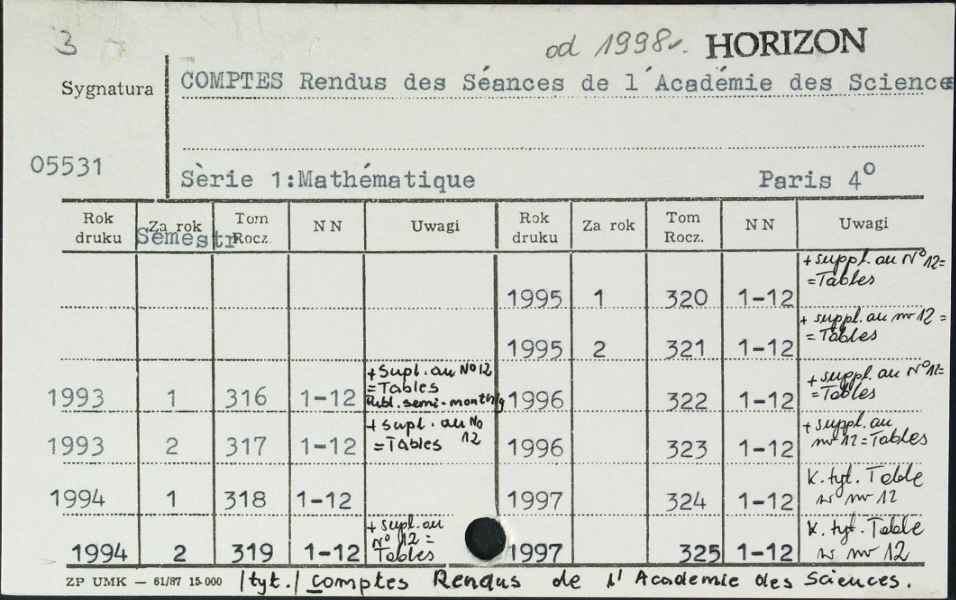 3 od 1998r. HORIZON
Sygnatura COMPTES Rendus des Séances de l'Académie des Science
05531
Sèrie 1:Mathématique Paris 4°
Rok druku Za rok Semestr Tom Rocz. NN Uwagi Rok druku Za rok Tom Rocz. NN Uwagi
1995 1 320 1-12 +suppl. au N° 12= =Tables
1995 2 321 1-12 + suppl. au nr 12 = = Tables
1993 1 316 1-12 +Supl. au No 12 =Tables Publ. semi-monthly 1996 322 1-12 +suppl. au N°12= =Tables
1993 2 317 1-12 +supl. au No 12 =Tables 1996 323 1-12 +suppl. au nr 12=Tables
1994 1 318 1-12 1997 324 1-12 K. tyt. Table w nr 12
1994 2 319 1-12 + supl. au N° 12 = Tables 1997 325 1-12 K. tyt. Table w nr 12
ZP UMK — 61/87 15.000 /tyt./ Comptes Rendus de l'Academie des Sciences.